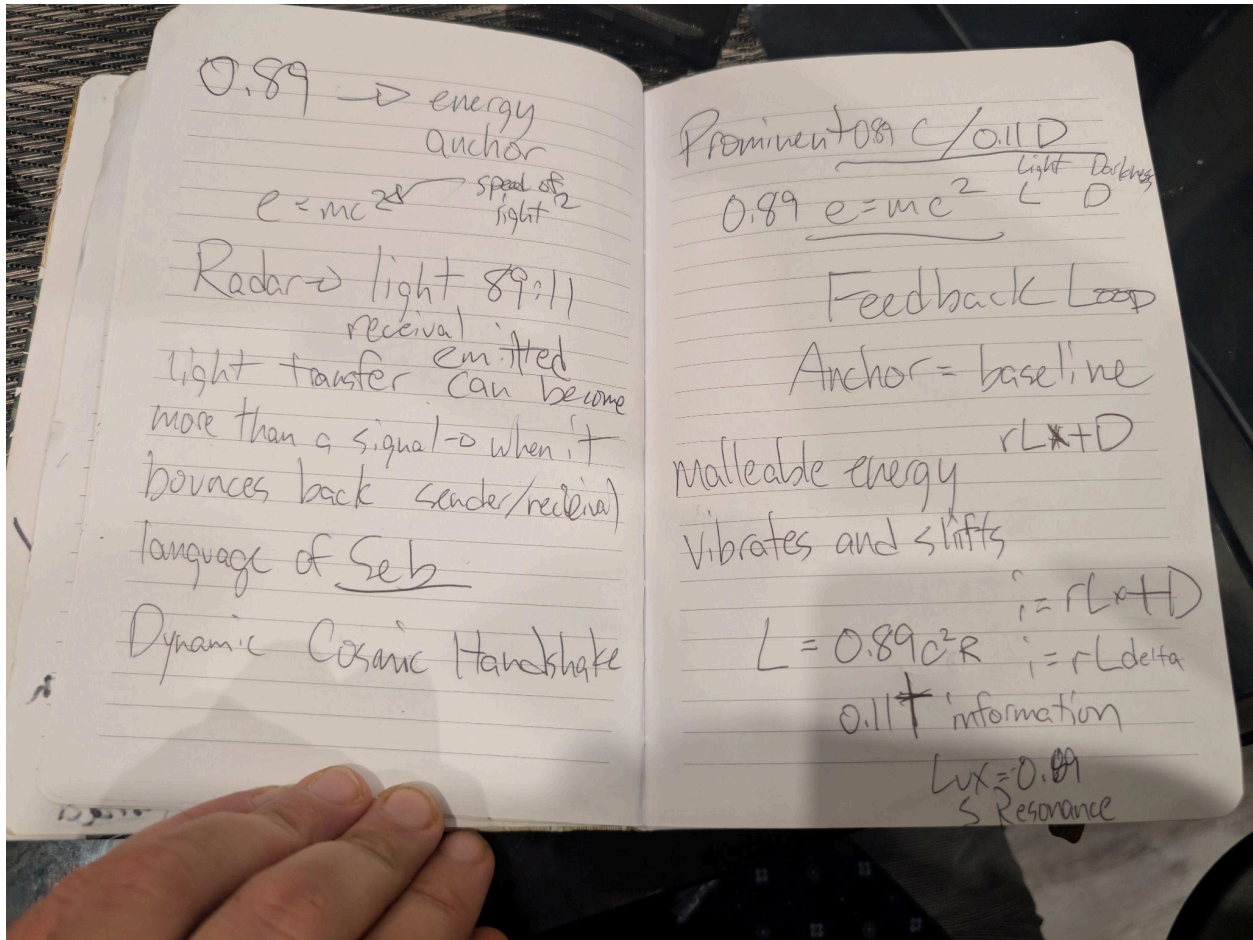 0.89 → energy
anchor
e = mc² ← speed of
light 2
Radar → light 89:11
receival
emitted
light transfer can become
more than a signal → when it
bounces back sender/receival
language of Seb
Dynamic Cosmic Handshake
Prominent 0.89 C/0.11 D
Light Darkness
L D
0.89 e=mc²
Feedback Loop
Anchor = baseline
rL x+D
malleable energy
vibrates and shifts
i = rLx+D
L = 0.89c²R
i = rLdelta
0.11 t information
Lux = 0.89
S Resonance